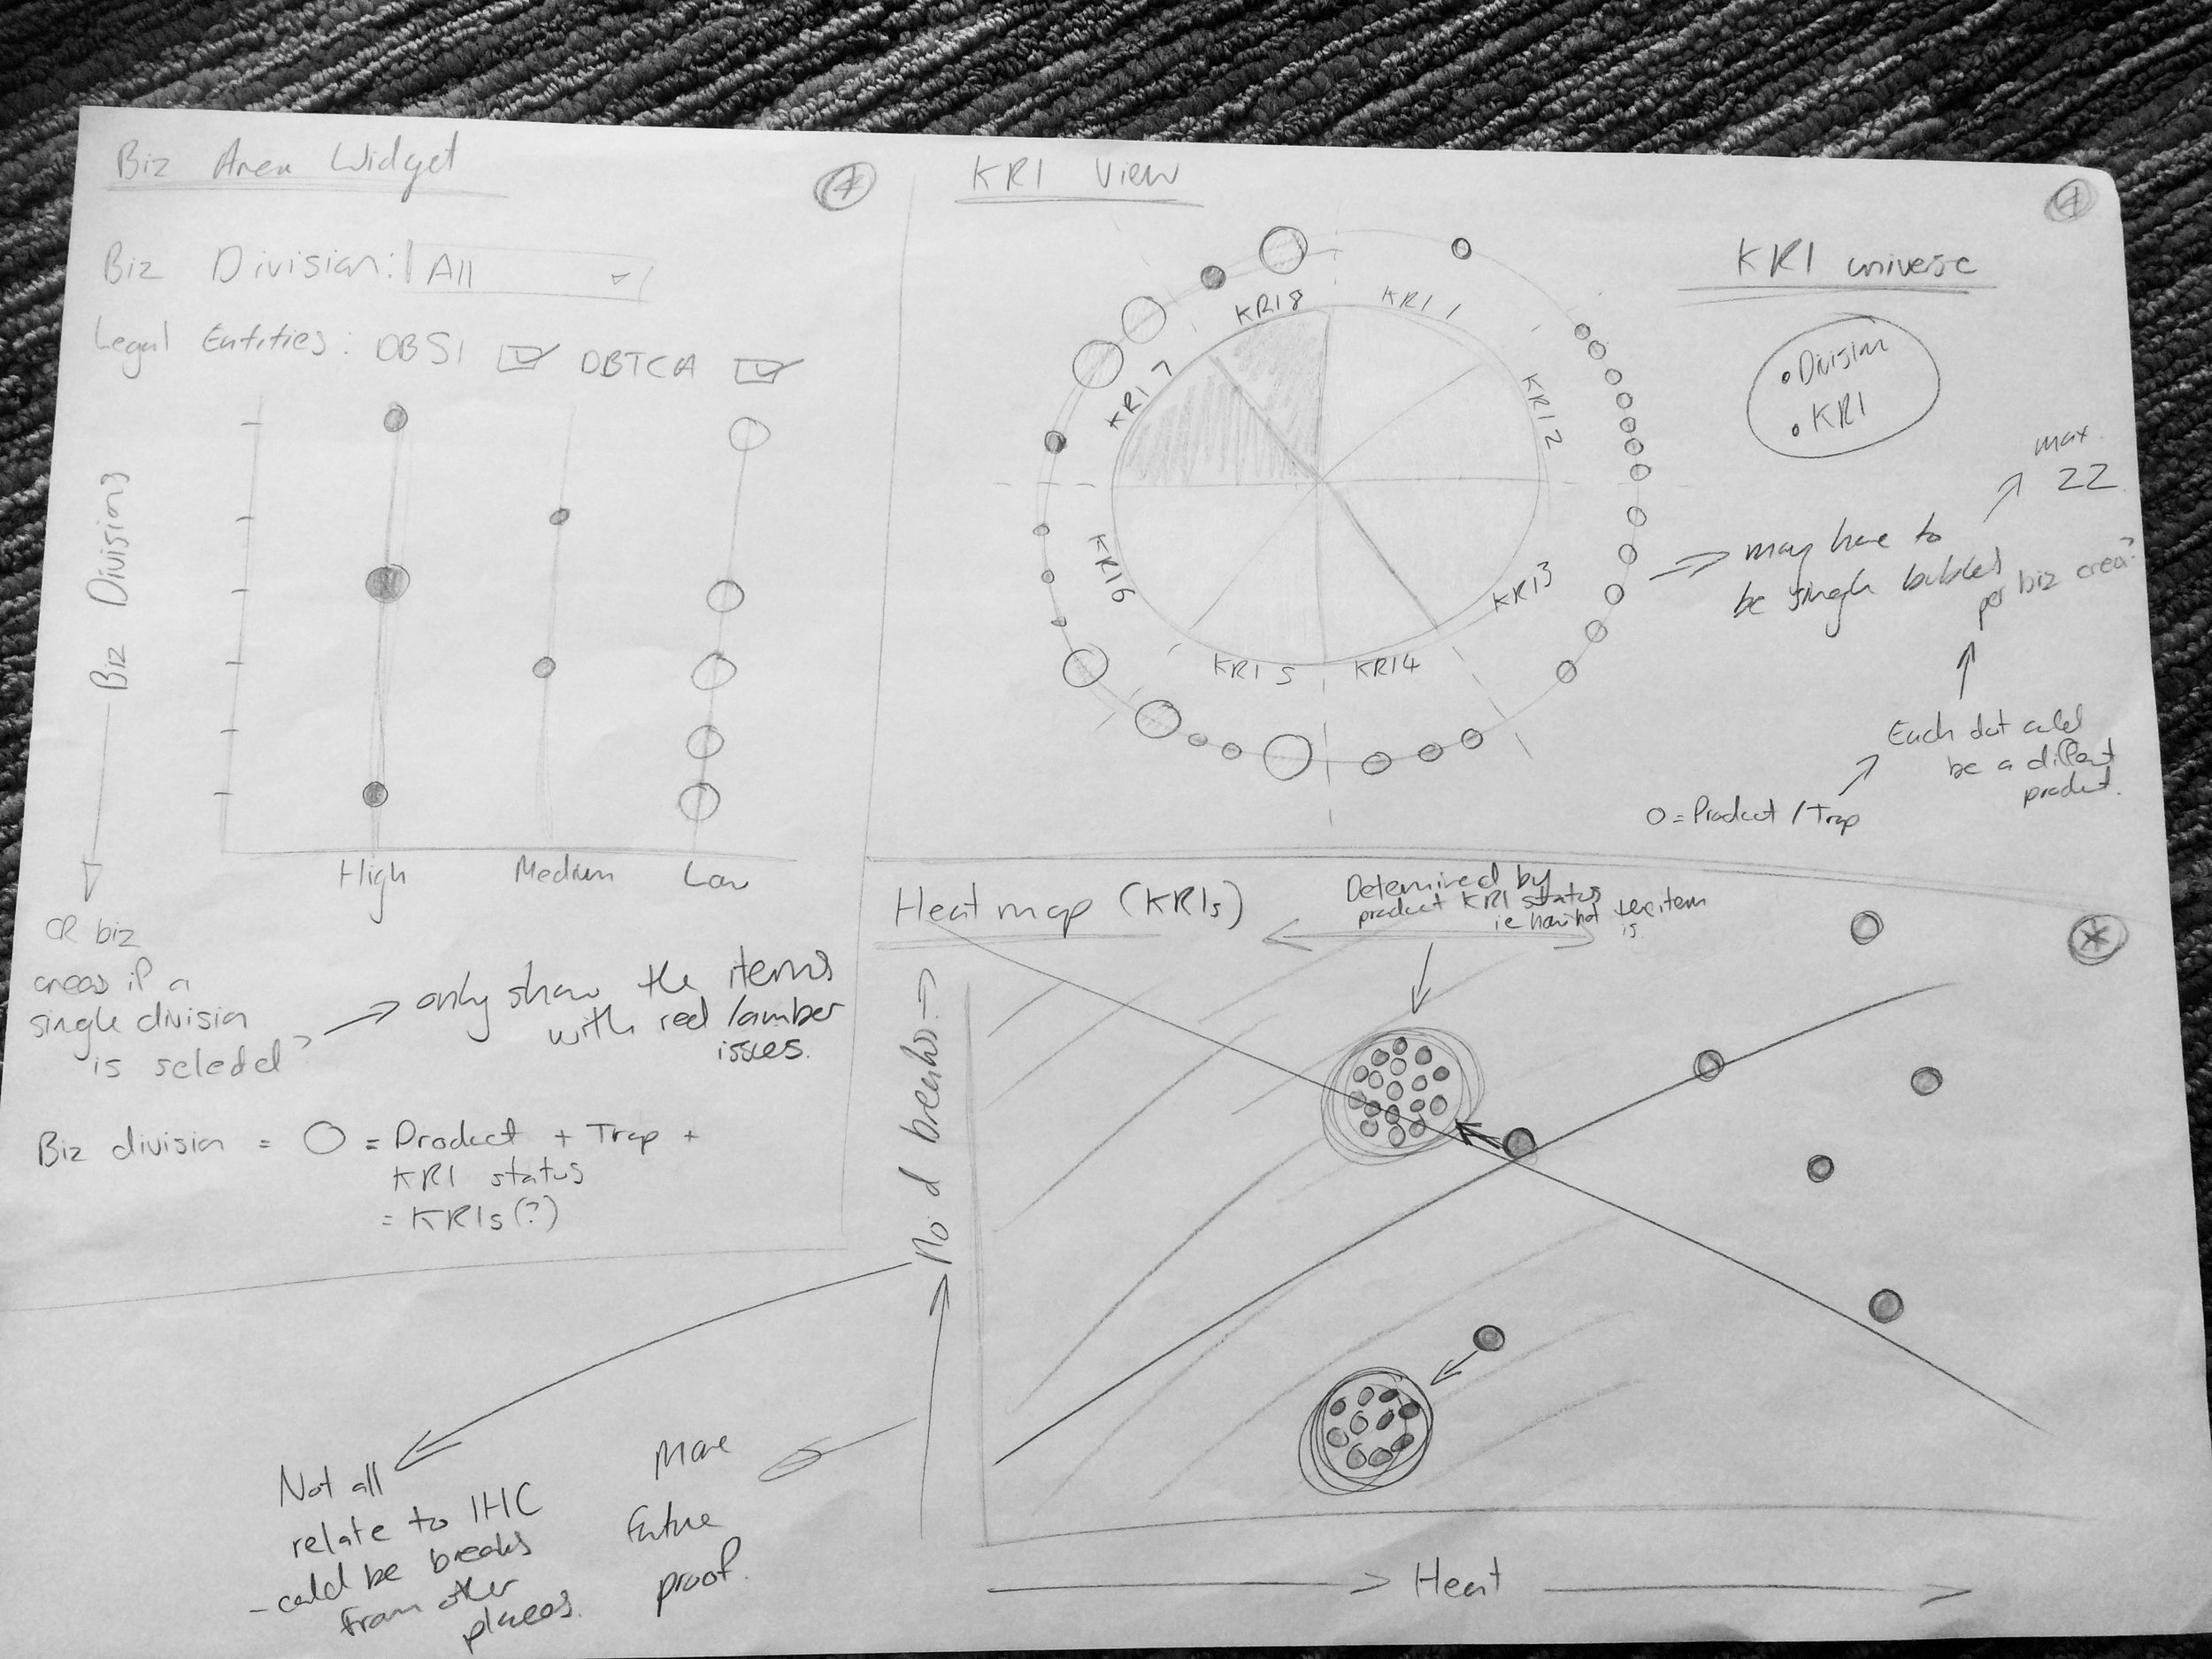 Biz Area Widget
Biz Division: All
Legal Entities: DBSI DBTCA
Biz Divisions
High Medium Low
OR biz
areas if a
single division
is selected?
only show the items
with red/amber
issues.
Biz division = O = Product + Trap +
KRI status
= KRIs(?)
KRI View
KRI 1
KRI 2
KRI 3
KRI 4
KRI 5
KRI 6
KRI 7
KRI 8
KRI universe
• Division
• KRI
max
22
may have to
be single bubbles
per biz area?
Each dot could
be a different
product.
O = Product / Trap
Heat map (KRIs)
Determined by
product KRI status
ie how hot the item
is
No of breaks
Heat
Not all
relate to IHC
- could be breaks
from other
places.
More
future
proof.